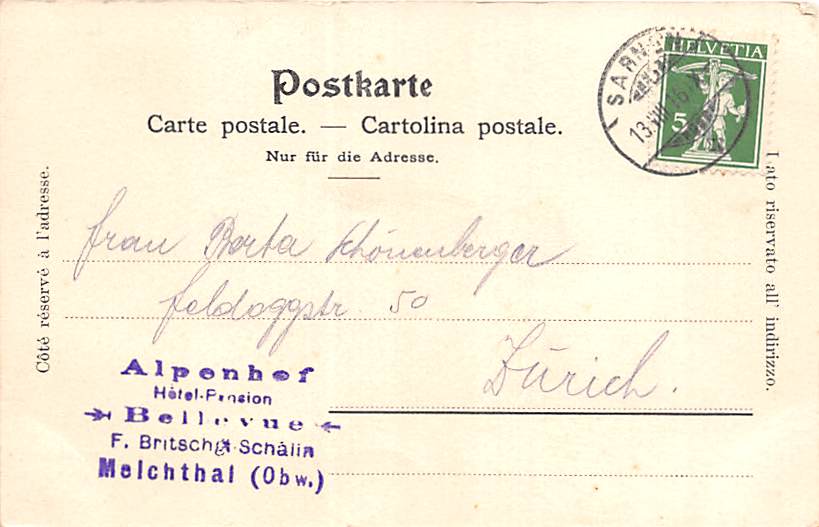 Postkarte
Carte postale. — Cartolina postale.
Nur für die Adresse.
Côté réservé à l'adresse.
Lato riservato all' indirizzo.
HELVETIA
5
SARNEN
13.VIII.16
Frau Berta Schönenberger
Feldeggstr. 50
Zürich.
Alpenhof
Hôtel-Pension
Bellevue
F. Britschgi-Schälin
Melchthal (Obw.)